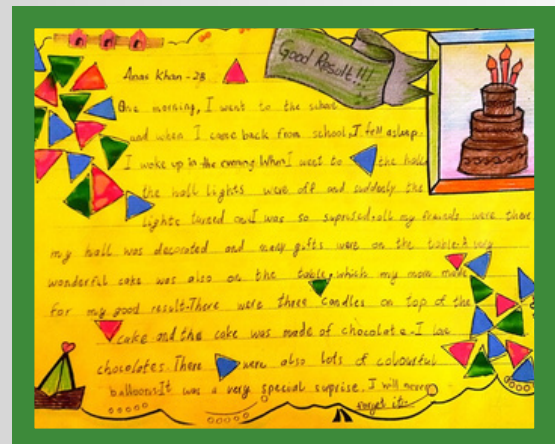 Good Result!!!
Anas Khan - 2B
One morning, I went to the school
and when I came back from school, I fell asleep.
I woke up in the evening. When I went to the hall,
the hall lights were off and suddenly the
lights turned on. I was so suprised. all my friends were there
my hall was decorated and many gifts were on the table. A very
wonderful cake was also on the table, which my mom made
for my good result. There were three candles on top of the
cake and the cake was made of chocolate. I love
chocolates. There were also lots of colourful
balloons. It was a very special suprise. I will never
forget it.